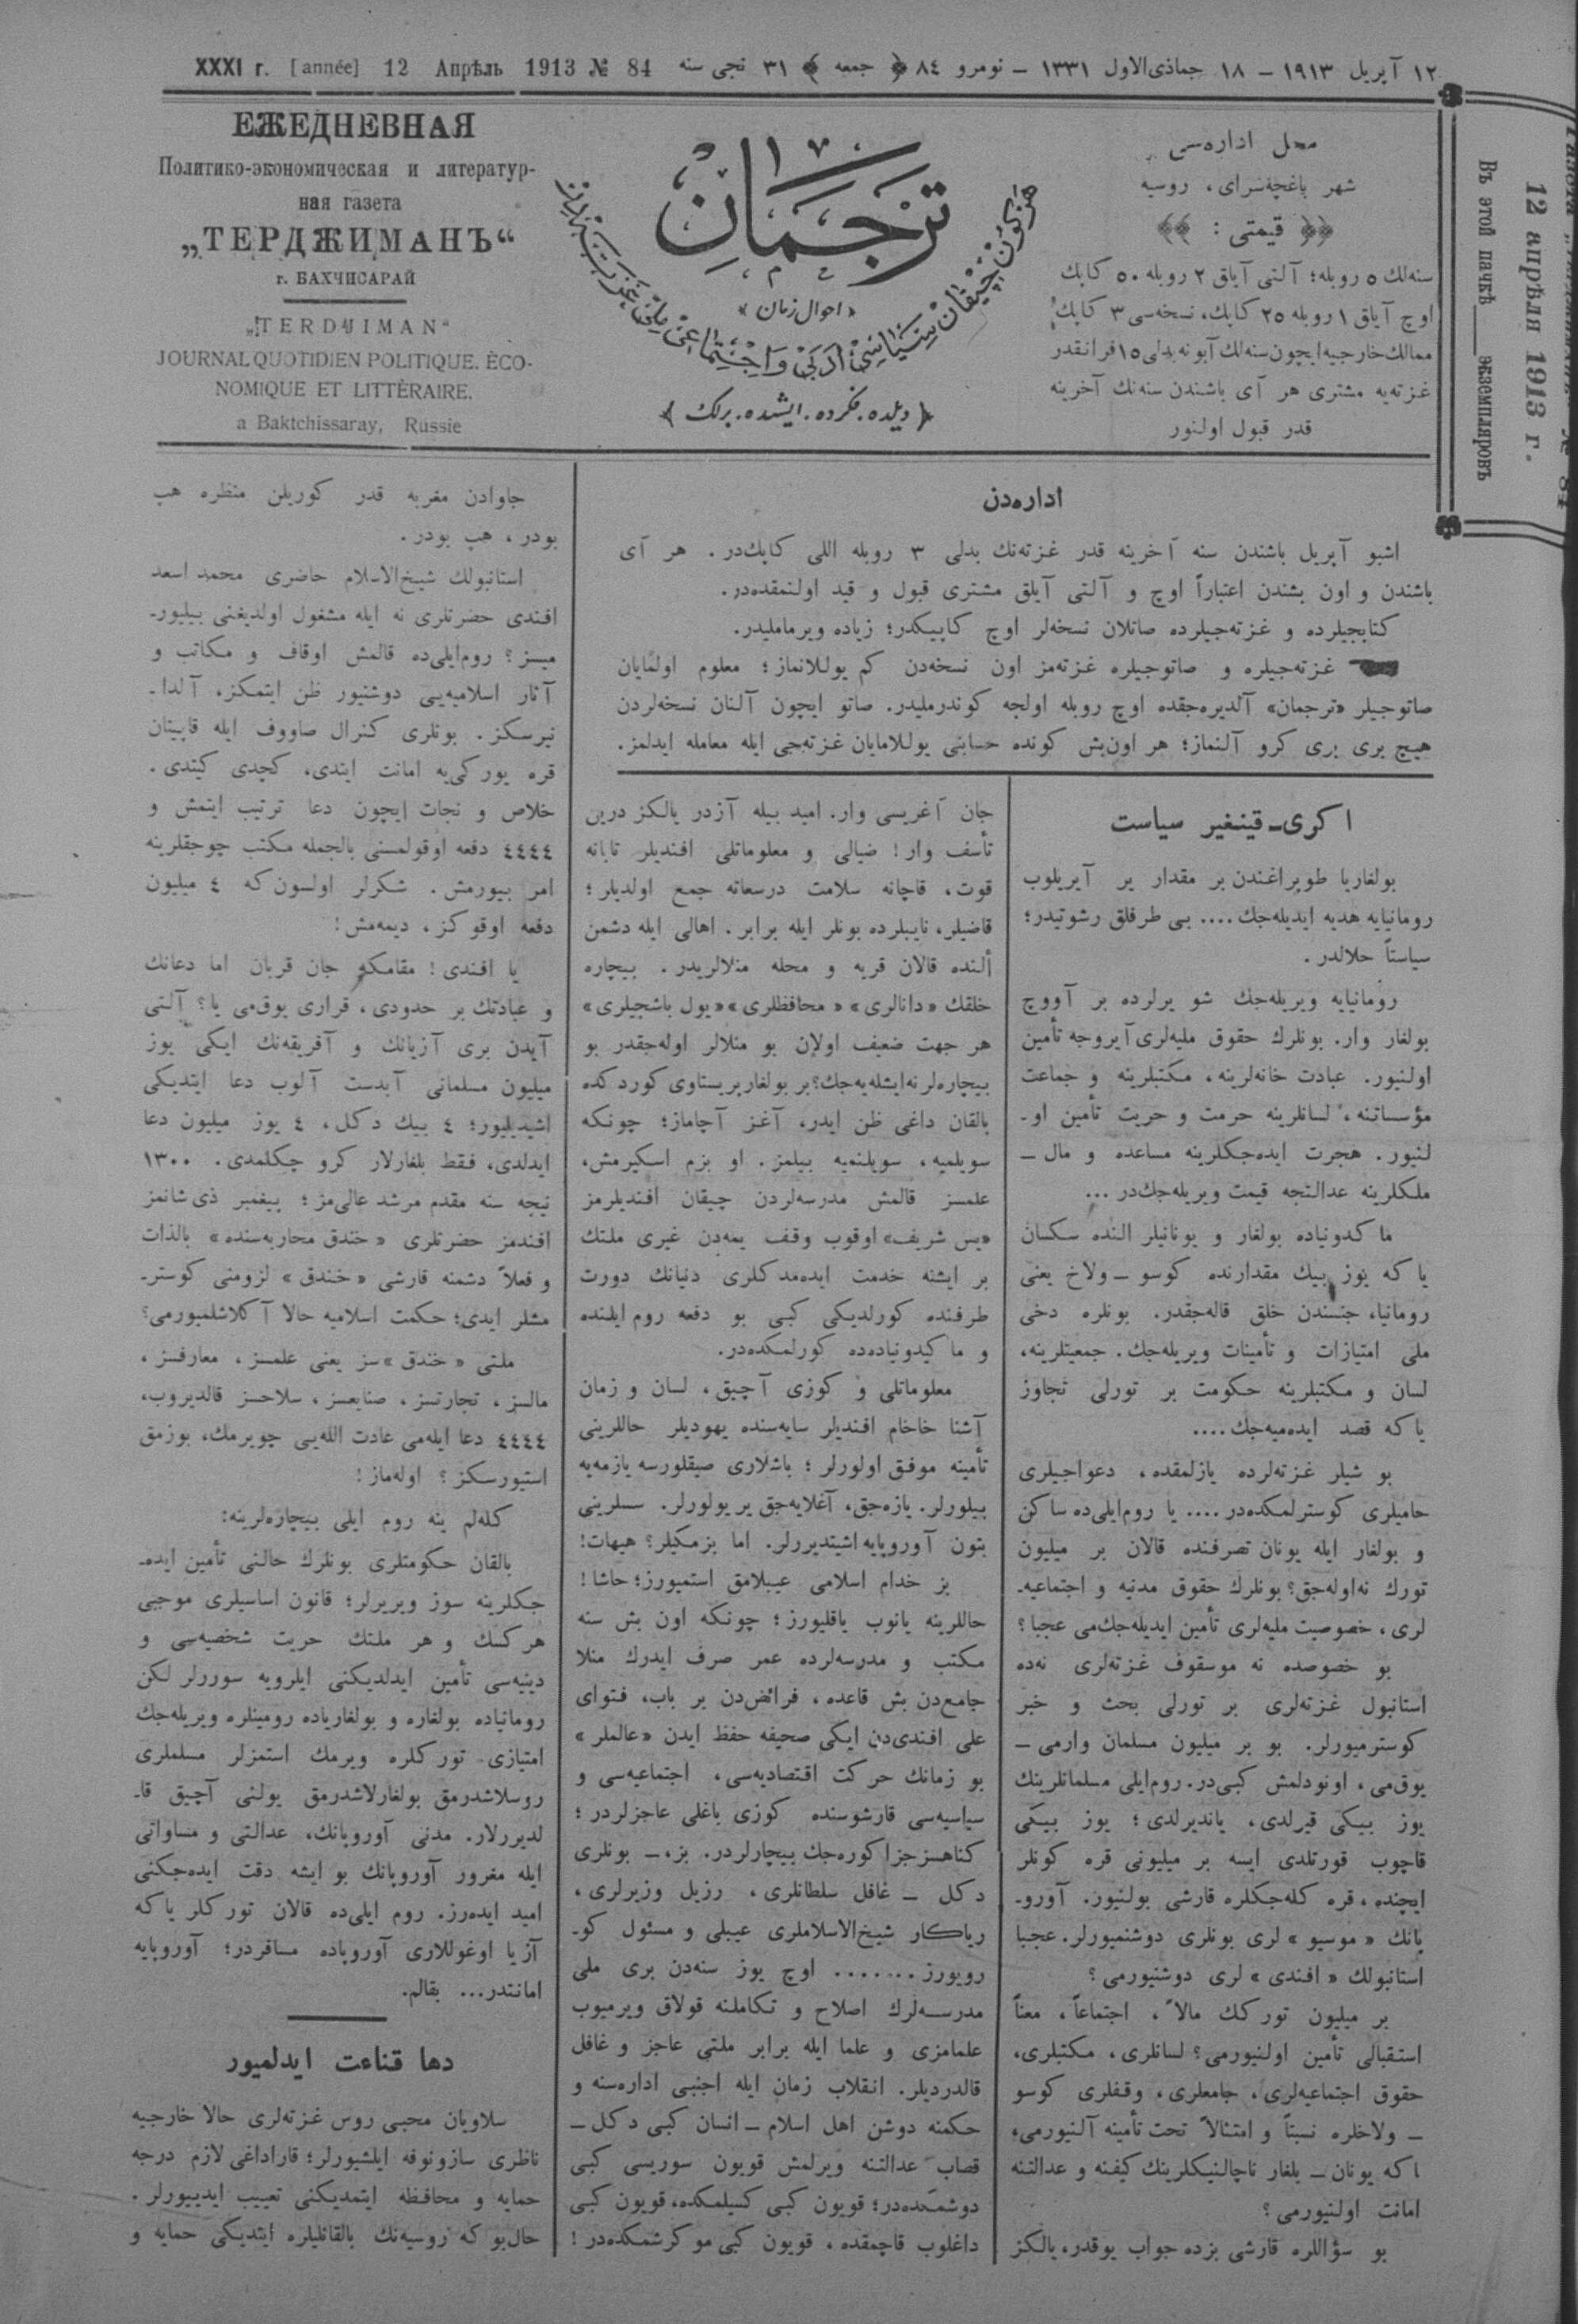 XXXI г. [année] 12 Апрѣль 1913 № 84 ١٢ آپریل ١٩١٣ – ١٨ جماذی‌الاول ١٣٣١ – نومرو ٨٤ ﴿ جمعه ﴾ ٣١ نجی سنه
ЕЖЕДНЕВНАЯ
Политико-экономическая и литератур-
ная газета
„ТЕРДЖИМАНЪ“
г. БАХЧИСАРАЙ
„TERDJIMAN“
JOURNAL QUOTIDIEN POLITIQUE. ÈCO-
NOMIQUE ET LITTÈRAIRE.
a Baktchissaray, Russie
ترجمان
﴿ احوال زمان ﴾
هر كون چیقان سیاسی ادبی و اجتماعی ملی غزته‌در
﴿ دیلده . فكرده . ایشده . برلك ﴾
محل اداره‌سی
شهر باغچه‌سرای، روسیه
قیمتی :
سنه‌لك ٥ روبله؛ آلتی آیلق ٢ روبله ٥٠ كاپك
اوچ آیلق ١ روبله ٢٥ كاپك، نسخه‌سی ٣ كاپك
ممالك خارجیه ایچون سنه‌لك آبونه بدلی ١٥ فرانقدر
غزته‌یه مشتری هر آی باشندن سنه‌نك آخرینه
قدر قبول اولنور
12 апрѣля 1913 г.
Въ этой пачкѣ ___ экземпляровъ
اداره‌دن
اشبو آپریل باشندن سنه آخرینه قدر غزته‌نك بدلی ٣ روبله اللی كاپك‌در. هر آی
باشندن و اون بشندن اعتباراً اوچ و آلتی آیلق مشتری قبول و قید اولنمقده‌در.
كتابجیلرده و غزته‌جیلرده صاتلان نسخه‌لر اوچ كاپیكدر؛ زیاده ویرماملیدر.
غزته‌جیلره و صاتوجیلره غزته‌مز اون نسخه‌دن كم یوللانماز؛ معلوم اولمایان
صاتوجیلر «ترجمان» آلدیره‌جقده اوچ روبله اولجه كوندرملیدر. صاتو ایچون آلنان نسخه‌لردن
هیچ بری بری كرو آلنماز؛ هر اون‌بش كونده حسابنی یوللامایان غزته‌جی ایله معامله ایدلمز.
اكری-قینغیر سیاست
بولغاریا طوپراغندن بر مقدار یر آیریلوب
رومانیایه هدیه ایدیله‌جك .... بی طرفلق رشوتیدر؛
سیاستاً حلالدر.
رومانیایه ویریله‌جك شو یرلرده بر آووچ
بولغار وار. بونلرك حقوق ملیه‌لری آیروجه تأمین
اولنیور. عبادت خانه‌لرینه، مكتبلرینه و جماعت
مؤسساتنه، لسانلرینه حرمت و حریت تأمین او-
لنیور. هجرت ایده‌جكلرینه مساعده و مال –
ملكلرینه عدالتجه قیمت ویریله‌جك‌در ...
ماكدونیاده بولغار و یونانیلر النده سكسان
یا كه یوز بیك مقدارنده كوسو – ولاخ یعنی
رومانیا، جنسندن خلق قاله‌جقدر. بونلره دخی
ملی امتیازات و تأمینات ویریله‌جك. جمعیتلرینه،
لسان و مكتبلرینه حكومت بر تورلی تجاوز
یا كه قصد ایده‌میه‌جك ....
بو شیلر غزته‌لرده یازلمقده، دعواجیلری
حامیلری كوسترلمكده‌در .... یا روم‌ایلی‌ده ساكن
و بولغار ایله یونان تصرفنده قالان بر میلیون
تورك نه‌اوله‌جق؟ بونلرك حقوق مدنیه و اجتماعیه-
لری، خصوصیت ملیه‌لری تأمین ایدیله‌جك‌می عجبا؟
بو خصوصده نه موسقوف غزته‌لری نه‌ده
استانبول غزته‌لری بر تورلی بحث و خبر
كوسترمیورلر. بو بر میلیون مسلمان وارمی –
یوق‌می، اونودلمش كبی‌در. روم‌ایلی مسلمانلرینك
یوز بیكی قیرلدی، یاندیرلدی؛ یوز بیكی
قاچوب قورتلدی ایسه بر میلیونی قره كونلر
ایچنده، قره كله‌جكلره قارشی بولنیور. آورو-
پانك «موسیو» لری بونلری دوشنمیورلر. عجبا
استانبولك «افندی» لری دوشنیورمی؟
بر میلیون تورك‌ك مالاً، اجتماعاً، معناً
استقبالی تأمین اولنیورمی؟ لسانلری، مكتبلری،
حقوق اجتماعیه‌لری، جامعلری، وقفلری كوسو
– ولاخلره نسبتاً و امتثالاً تحت تأمینه آلنیورمی،
یا كه یونان – بلغار ناچالنیكلرینك كیفنه و عدالتنه
امانت اولنیورمی؟
بو سؤاللره قارشی بزده جواب یوقدر، یالكز
جان آغریسی وار. امید بیله آزدر یالكز درین
تأسف وار! ضیالی و معلوماتلی افندیلر تابانه
قوت، قاچانه سلامت درسعاته جمع اولدیلر؛
قاضیلر، نایبلرده بونلر ایله برابر. اهالی ایله دشمن
ألنده قالان قریه و محله منلالریدر. بیچاره
خلقك «دانالری» «محافظلری» «یول باشجیلری»
هر جهت ضعیف اولان بو منلالر اوله‌جقدر بو
بیچاره‌لر نه‌ایشله‌یه‌جك؟ بر بولغار پریستاوی كوردكده
بالقان داغی ظن ایدر، آغز آچاماز؛ چونكه
سویلمیه، سویلنمیه بیلمز. او بزم اسكیرمش،
علمسز قالمش مدرسه‌لردن چیقان افندیلرمز
«یس شریف» اوقوب وقف یمه‌دن غیری ملتك
بر ایشنه خدمت ایده‌مدكلری دنیانك دورت
طرفنده كورلدیكی كبی بو دفعه روم ایلنده
و ماكیدونیاده‌ده كورلمكده‌در.
معلوماتلی و كوزی آچیق، لسان و زمان
آشنا خاخام افندیلر سایه‌سنده یهودیلر حاللرینی
تأمینه موفق اولورلر؛ باشلاری صیقلورسه یازمه‌یه
بیلورلر. یازه‌جق، آغلایه‌جق یر بولورلر. سسلرینی
بتون آوروپایه اشیتدیررلر. اما بزمكیلر؟ هیهات!
بز خدام اسلامی عیبلامق استمیورز؛ حاشا!
حاللرینه یانوب یاقلیورز؛ چونكه اون بش سنه
مكتب و مدرسه‌لرده عمر صرف ایدرك منلا
جامع‌دن بش قاعده، فرائض‌دن بر باب، فتوای
علی افندی‌دن ایكی صحیفه حفظ ایدن «عالملر»
بو زمانك حركت اقتصادیه‌سی، اجتماعیه‌سی و
سیاسیه‌سی قارشوسنده كوزی باغلی عاجزلردر؛
كناهسز جزا كوره‌جك بیچارلردر. بز، – بونلری
دكل – غافل سلطانلری، رزیل وزیرلری،
ریاكار شیخ‌الاسلاملری عیبلی و مسئول كو-
رویورز ....... اوچ یوز سنه‌دن بری ملی
مدرسه‌لرك اصلاح و تكاملنه قولاق ویرمیوب
علمامزی و علما ایله برابر ملتی عاجز و غافل
قالدردیلر. انقلاب زمان ایله اجنبی اداره‌سنه و
حكمنه دوشن اهل اسلام – انسان كبی دكل –
قصاب عدالتنه ویرلمش قویون سوریسی كبی
دوشمكده‌در؛ قویون كبی كسیلمكده، قویون كبی
داغلوب قاچمقده، قویون كبی موكرشمكده‌در!
جاوادن مغربه قدر كوریلن منظره هپ
بودر، هپ بودر.
استانبولك شیخ‌الاسلام حاضری محمد اسعد
افندی حضرتلری نه ایله مشغول اولدیغنی بیلیور-
میسز؟ روم‌ایلی‌ده قالمش اوقاف و مكاتب و
آثار اسلامیه‌یی دوشنیور ظن ایتمكز، آلدا-
نیرسكز. بونلری كنرال صاووف ایله قاپیتان
قره یوركی‌یه امانت ایتدی، كچدی كیتدی.
خلاص و نجات ایچون دعا ترتیب ایتمش و
٤٤٤٤ دفعه اوقولمسنی بالجمله مكتب چوجقلرینه
امر بیورمش. شكرلر اولسون كه ٤ میلیون
دفعه اوقوكز، دیمه‌مش!
یا افندی! مقامكه جان قربان اما دعانك
و عبادتك بر حدودی، قراری یوق‌می یا؟ آلتی
آیدن بری آزیانك و آفریقه‌نك ایكی یوز
میلیون مسلمانی آبدست آلوب دعا ایتدیكی
اشیدیلیور؛ ٤ بیك دكل، ٤ یوز میلیون دعا
ایدلدی، فقط بلغارلار كرو چكلمدی. ١٣٠٠
نیجه سنه مقدم مرشد عالی‌مز؛ پیغمبر ذی شانمز
افندمز حضرتلری «خندق محاربه‌سنده» بالذات
و فعلاً دشمنه قارشی «خندق» لزومنی كوستر-
مشلر ایدی؛ حكمت اسلامیه حالا آكلاشلمیورمی؟
ملتی «خندق» سز یعنی علمسز، معارفسز،
مالسز، تجارتسز، صنایعسز، سلاحسز قالدیروب،
٤٤٤٤ دعا ایله‌می عادت الله‌یی چویرمك، بوزمق
استیورسكز؟ اوله‌ماز!
كله‌لم ینه روم ایلی بیچاره‌لرینه:
بالقان حكومتلری بونلرك حالنی تأمین ایده-
جكلرینه سوز ویریرلر؛ قانون اساسیلری موجبی
هركسك و هر ملتك حریت شخصیه‌سی و
دینیه‌سی تأمین ایدلدیكنی ایلرویه سوررلر لكن
رومانیاده بولغاره و بولغاریاده رومینلره ویریله‌جك
امتیازی توركلره ویرمك استمزلر مسلملری
روسلاشدرمق بولغارلاشدرمق یولنی آچیق قا-
لدیررلار. مدنی آوروپانك، عدالتی و مساواتی
ایله مغرور آوروپانك بو ایشه دقت ایده‌جكنی
امید ایده‌رز. روم ایلی‌ده قالان توركلر یا كه
آزیا اوغوللاری آوروپاده مسافردر؛ آوروپایه
امانتدر... بقالم.
دها قناعت ایدلمیور
سلاویان محبی روس غزته‌لری حالا خارجیه
ناظری سازونوفه ایلشیورلر؛ قاراداغی لازم درجه
حمایه و محافظه ایتمدیكنی تعییب ایدییورلر.
حال‌بوكه روسیه‌نك بالقانلیلره ایتدیكی حمایه و